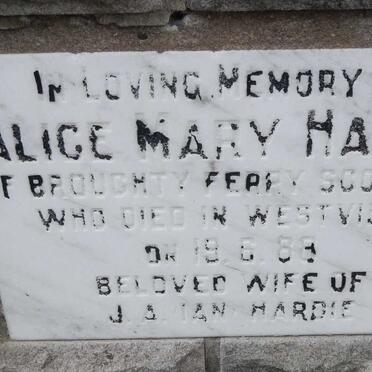 IN LOVING MEMORY
ALICE MARY HA
OF BROUGHTY FERRY SCO
WHO DIED IN WESTVI
ON 18.6.88
BELOVED WIFE OF
J.A. IAN HARDIE